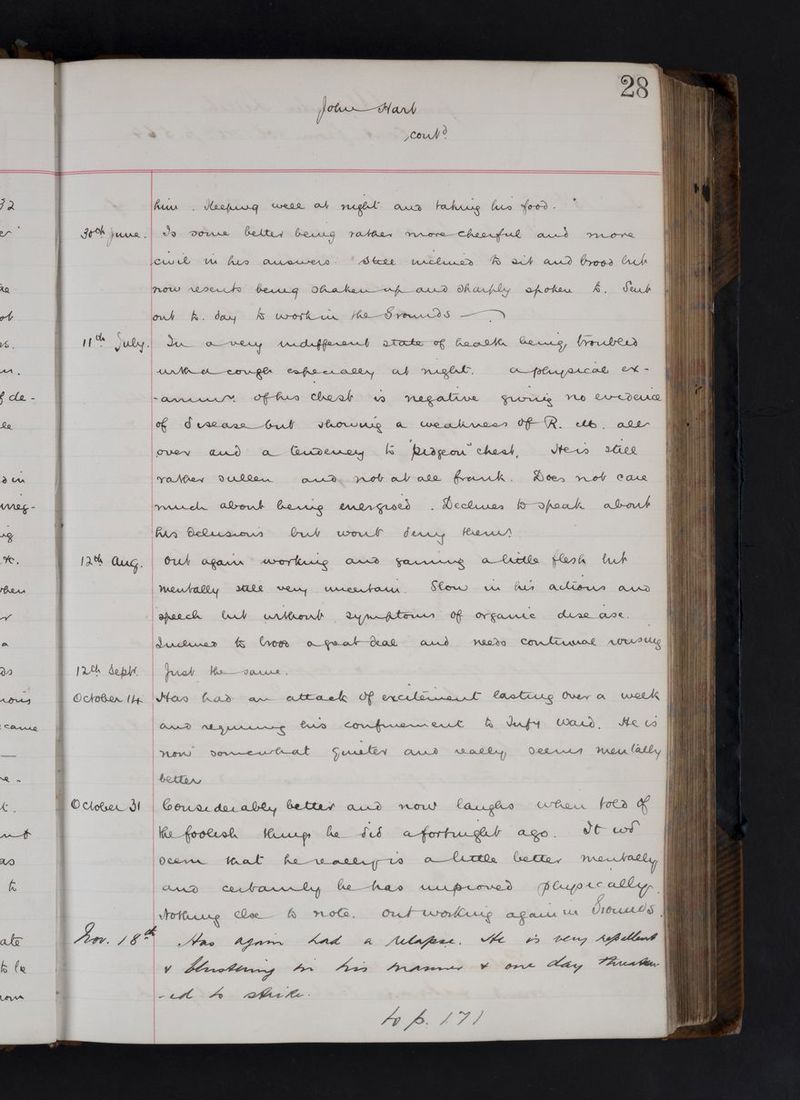 28
John Hart
contd
him. Sleeping well at night and taking his food.
30th June. Is some better being rather more cheerful and more
civil in his answers. Still inclined to sit and brood but
now resents being shaken up and sharply spoken to. Sent
out to. day to work in the Grounds
11th July. In a very indifferent state of health being troubled
with a cough especially at night. a physical ex-
-aminn. of his chest is negative giving no evidence
of disease but showing a weakness of R. M. all
over and a tendency to "pidgeon" chest. He is still
rather sullen and not at all frank. Does not care
much about being energised. Declines to speak about
his delusions but wont deny them.
12th Aug. Out again working and gaining a little flesh but
mentally still very uncertain. Slow in his actions and
speech but without symptoms of organic disease.
Inclined to brood a great deal and needs continual rousing
12th Sept. Just the same.
October 14 Has had an attack of excitement lasting over a week
and requiring his confinement to Infy Ward. He is
now somewhat quieter and really seems mentally
better
October 31 Considerably better and now laughs when told of
the foolish things he did a fortnight ago. It wd
seem that he really is a little better mentally
and certainly he has improved physically.
Nothing else to note. Out working again in Grounds.
Nov. 18th Has again had a relapse. He is very repellent
& blustering in his manner & one day threaten
-ed to strike.
to p. 171